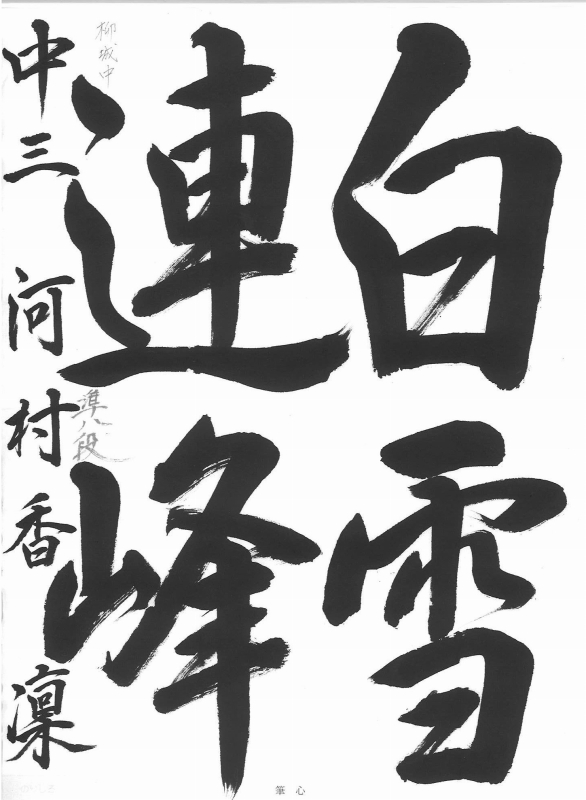 白雪
連峰
中三 河村香凜
柳城中
準八段
筆心